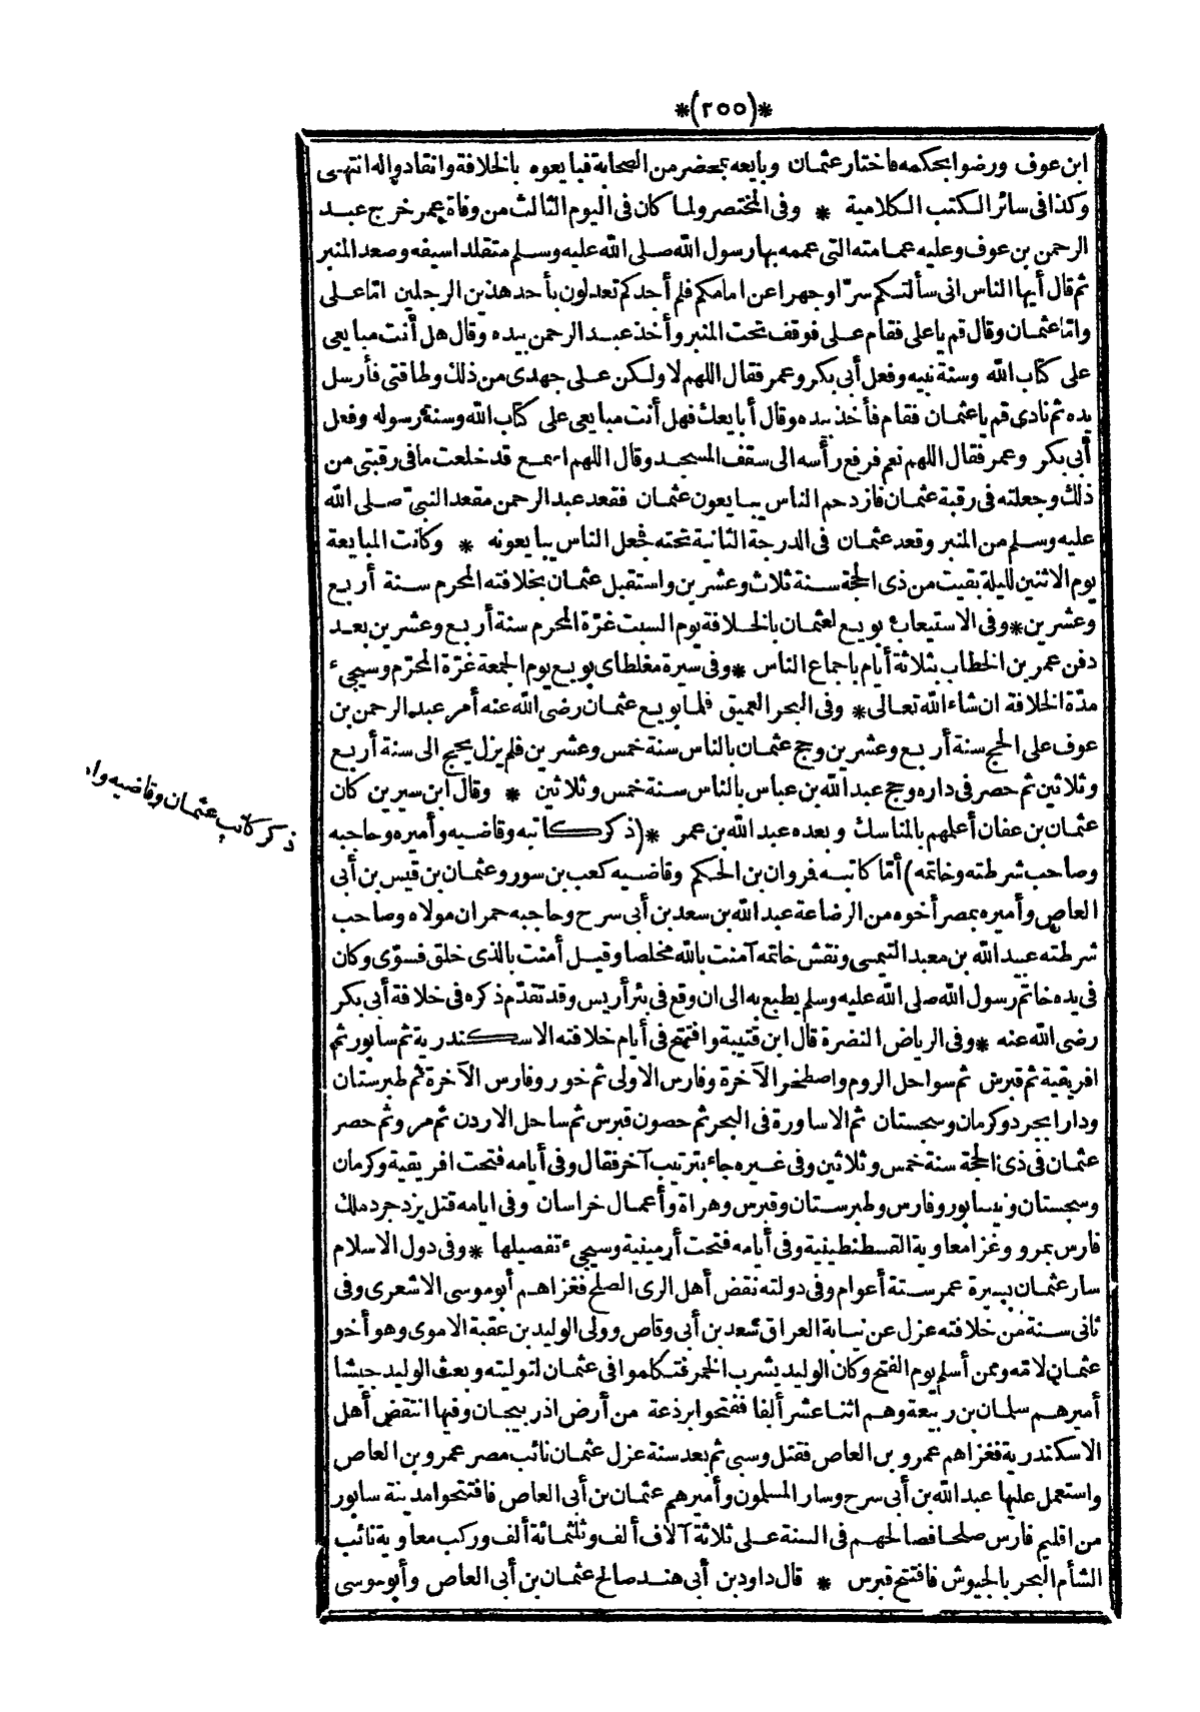 *(٢٥٥)*
ابن عوف ورضوا بحكمه فاختار عثمان وبايعه بمحضر من الصحابة فبايعوه بالخلافة وانقادوا له انتهى
وكذا فى سائر الكتب الكلامية * وفى المختصر ولما كان فى اليوم الثالث من وفاة عمر خرج عبد
الرحمن بن عوف وعليه عمامته التى عممه بها رسول الله صلى الله عليه وسلم متقلدا سيفه وصعد المنبر
ثم قال أيها الناس انى سألتكم سرّا وجهرا عن امامكم فلم أجدكم تعدلون بأحد هذين الرجلين امّا على
وامّا عثمان وقال قم يا على فقام على فوقف تحت المنبر وأخذ عبد الرحمن بيده وقال هل أنت مبايعى
على كتاب الله وسنة نبيه وفعل أبى بكر وعمر فقال اللهم لا ولكن على جهدى من ذلك وطاقتى فأرسل
يده ثم نادى قم يا عثمان فقام فأخذ بيده وقال أبايعك فهل أنت مبايعى على كتاب الله وسنة رسوله وفعل
أبى بكر وعمر فقال اللهم نعم فرفع رأسه الى سقف المسجد وقال اللهم اسمع قد خلعت ما فى رقبتى من
ذلك وجعلته فى رقبة عثمان فازدحم الناس يبايعون عثمان فقعد عبد الرحمن مقعد النبىّ صلى الله
عليه وسلم من المنبر وقعد عثمان فى الدرجة الثانية تحته فجعل الناس يبايعونه * وكانت المبايعة
يوم الاثنين لليلة بقيت من ذى الحجة سنة ثلاث وعشرين واستقبل عثمان بخلافته المحرم سنة أربع
وعشرين * وفى الاستيعاب بويع لعثمان بالخلافة يوم السبت غرّة المحرم سنة أربع وعشرين بعد
دفن عمر بن الخطاب بثلاثة أيام باجماع الناس * وفى سيرة مغلطاى بويع يوم الجمعة غرّة المحرّم وسيجىء
مدّة الخلافة ان شاء الله تعالى * وفى البحر العميق فلما بويع عثمان رضى الله عنه أمر عبد الرحمن بن
عوف على الحج سنة أربع وعشرين وحج عثمان بالناس سنة خمس وعشرين فلم يزل يحج الى سنة أربع
وثلاثين ثم حصر فى داره وحج عبد الله بن عباس بالناس سنة خمس وثلاثين * وقال ابن سيرين كان
عثمان بن عفان أعلمهم بالمناسك وبعده عبد الله بن عمر *(ذكر كاتبه وقاضيه وأميره وحاجبه
وصاحب شرطته وخاتمه) أمّا كاتبه فمروان بن الحكم وقاضيه كعب بن سور وعثمان بن قيس بن أبى
العاص وأميره بمصر أخوه من الرضاعة عبد الله بن سعد بن أبى سرح وحاجبه حمران مولاه وصاحب
شرطته عبد الله بن معبد التيمى ونقش خاتمه آمنت بالله مخلصا وقيل أمنت بالذى خلق فسوّى وكان
فى يده خاتم رسول الله صلى الله عليه وسلم يطبع به الى ان وقع فى بئر أريس وقد تقدّم ذكره فى خلافة أبى بكر
رضى الله عنه * وفى الرياض النضرة قال ابن قتيبة وافتتح فى أيام خلافته الاسكندرية ثم سابور ثم
افريقية ثم قبرش ثم سواحل الروم واصطخر الآخرة وفارس الاولى ثم خور وفارس الآخرة ثم طبرستان
ودارابجرد وكرمان وسجستان ثم الاساورة فى البحر ثم حصون قبرس ثم ساحل الاردن ثم مرو ثم حصر
عثمان فى ذى الحجة سنة خمس وثلاثين وفى غيره جاء بترتيب آخر فقال وفى أيامه فتحت افريقية وكرمان
وسجستان ونيسابور وفارس وطبرستان وقبرس وهراة وأعمال خراسان وفى ايامه قتل يزدجرد ملك
فارس بمرو وغزا معاوية القسطنطينية وفى أيامه فتحت أرمينية وسيجىء تفصيلها * وفى دول الاسلام
سار عثمان بسيرة عمر ستة أعوام وفى دولته نقض أهل الرى الصلح فغزاهم أبو موسى الاشعرى وفى
ثانى سنة من خلافته عزل عن نيابة العراق سعد بن أبى وقاص وولى الوليد بن عقبة الاموى وهو أخو
عثمان لامّه وممن أسلم يوم الفتح وكان الوليد يشرب الخمر فتكلموا فى عثمان لتوليته وبعث الوليد جيشا
أميرهم سلمان بن ربيعة وهم اثنا عشر ألفا ففتحوا برذعة من أرض اذربيجان وفيها انتقض أهل
الاسكندرية فغزاهم عمرو بن العاص فقتل وسبى ثم بعد سنة عزل عثمان نائب مصر عمرو بن العاص
واستعمل عليها عبد الله بن أبى سرح وسار المسلمون وأميرهم عثمان بن أبى العاص فافتتحوا مدينة سابور
من اقليم فارس صلحا فصالحهم فى السنة على ثلاثة آلاف ألف وثلثمائة ألف وركب معاوية نائب
الشأم البحر بالجيوش فافتتح قبرس * قال داود بن أبى هند صالح عثمان بن أبى العاص وأبو موسى
ذكر كاتب عثمان وقاضيه وا